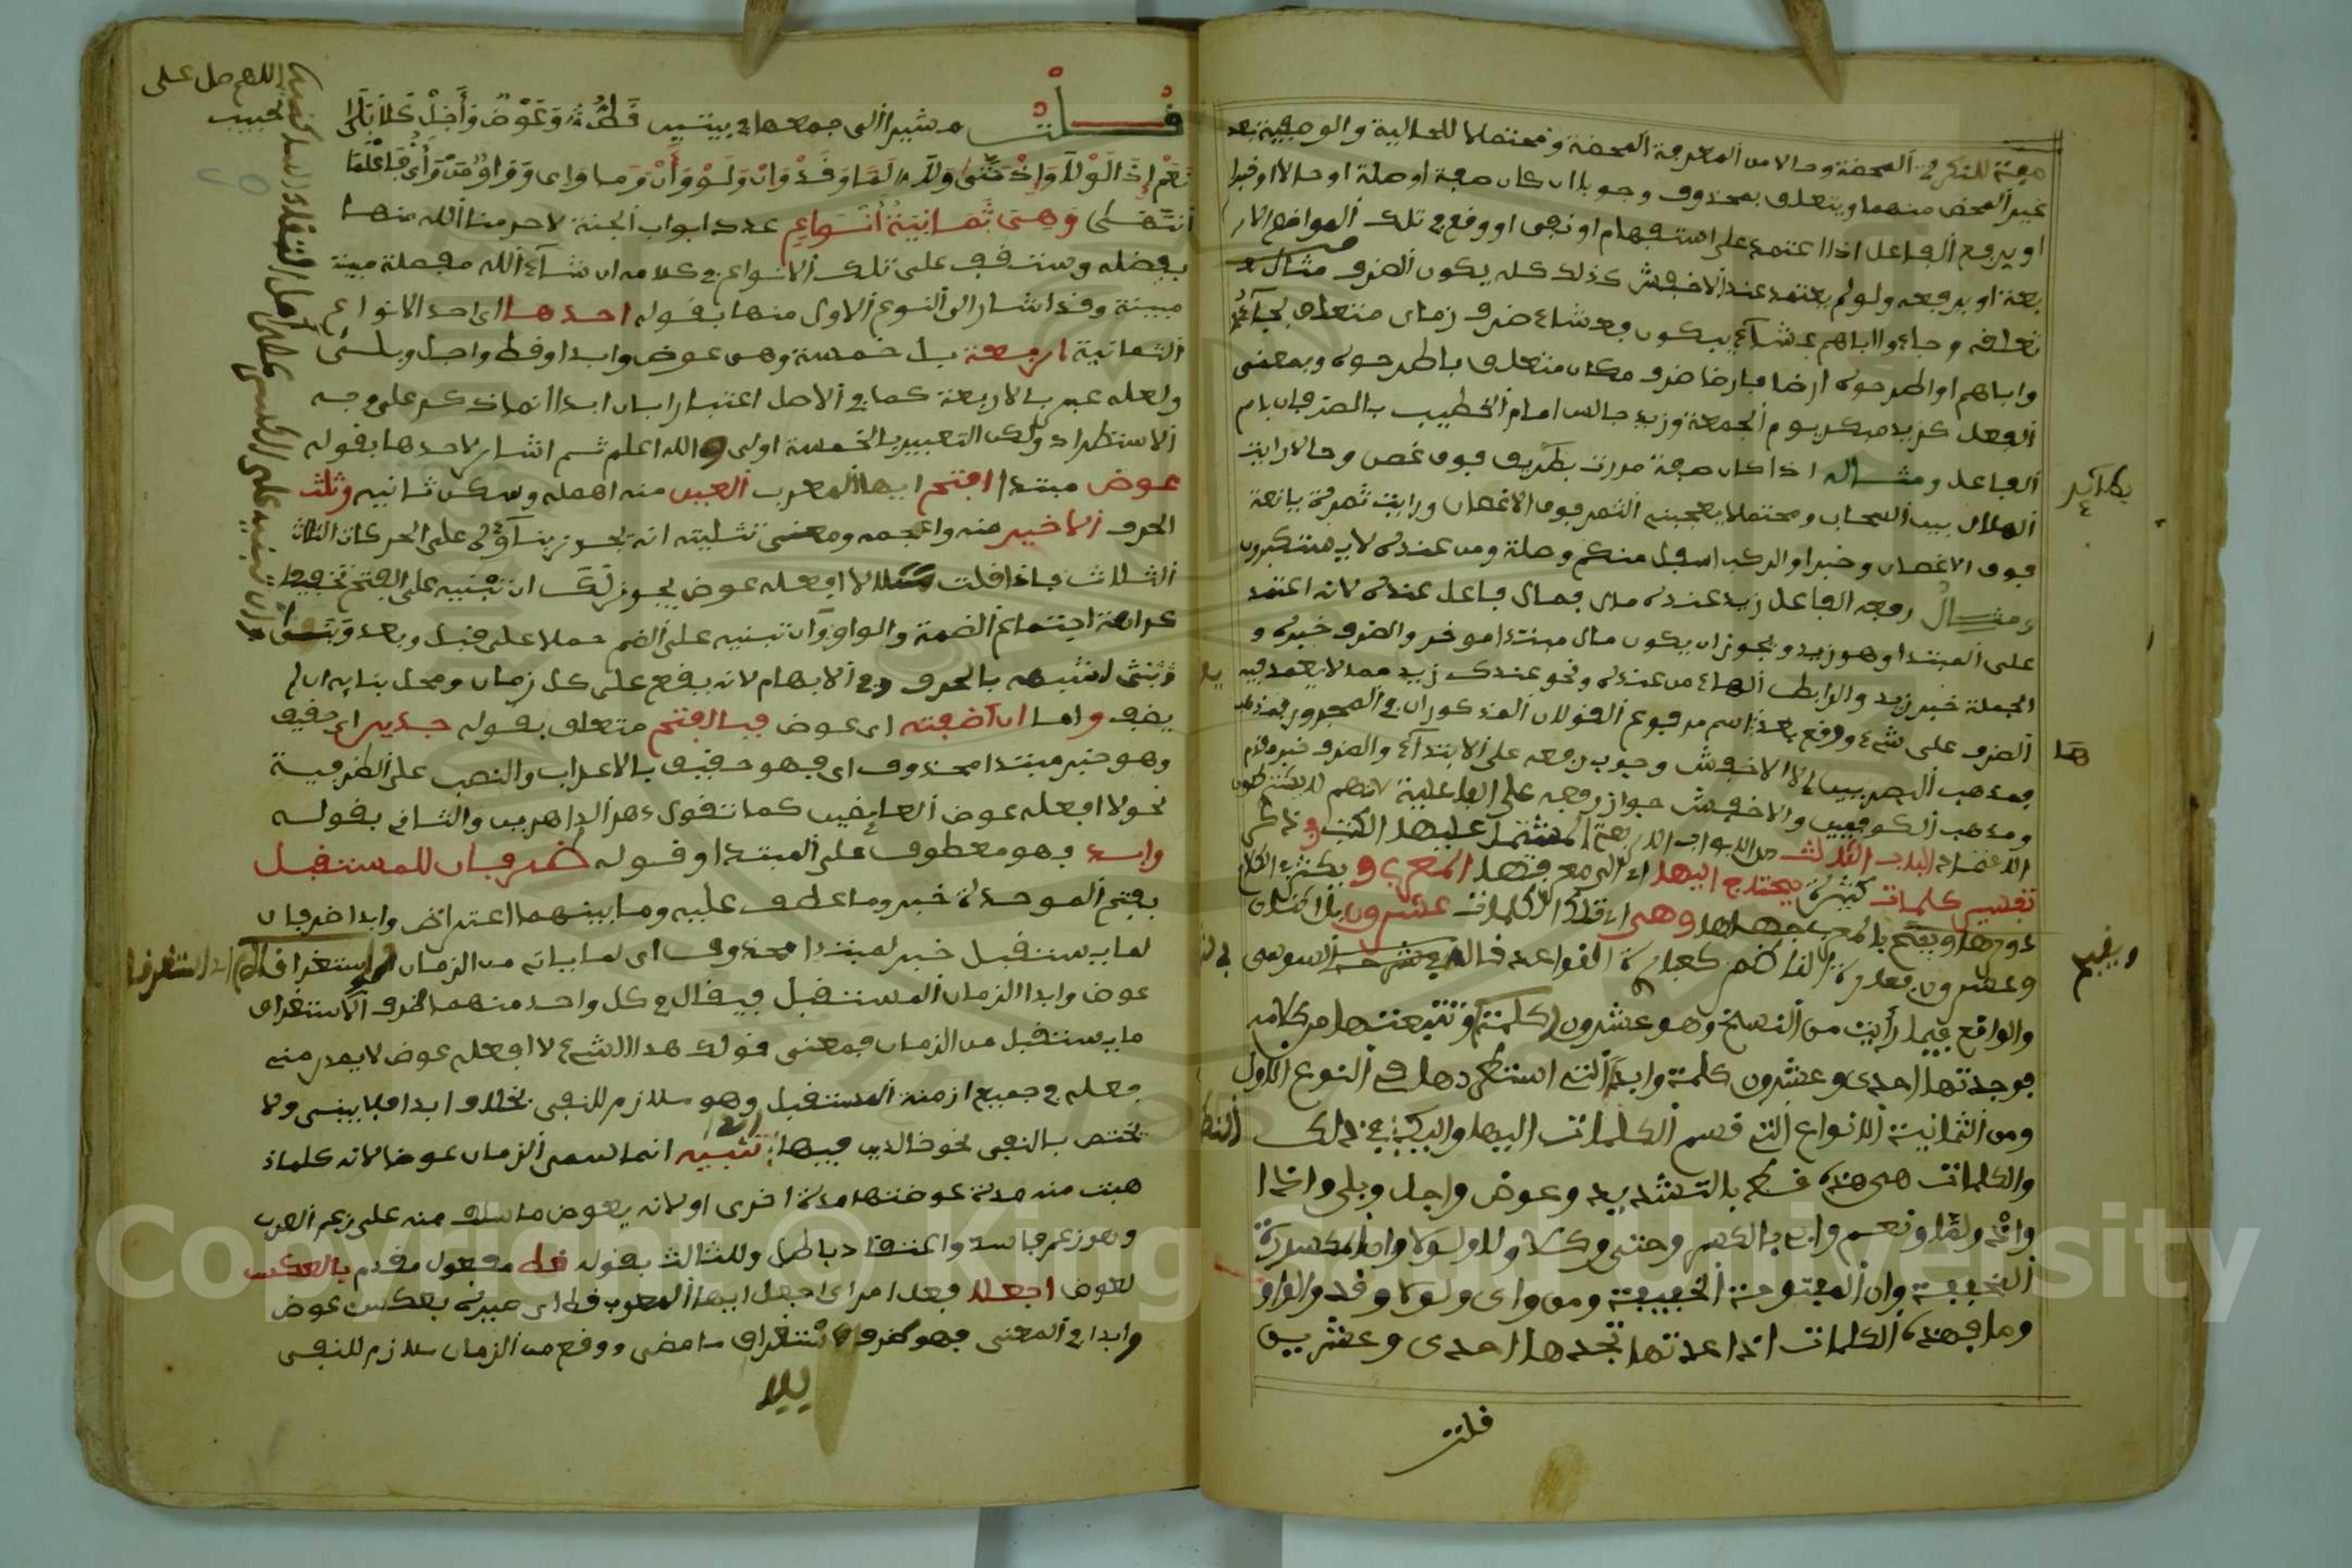 صفة للنكرة المحضة وحالا من المعرفة المحضة ومحتملا للحالية والوصفية بعد
غير المحض منهما ويتعلق بمحذوف وجوبا ان كان صفة او صلة او حالا او خبرا
او يرفع الفاعل اذا اعتمد على استفهام او نفي او وقع في تلك المواضع الار
بعة او يرفعه ولو لم يعتمد عند الاخفش كذلك كله يكون الضرف مثال
تعلقه وجاءوا اباهم عشاء يبكون فعشاء ضرف زمان متعلق بجاءو
واباهم او اطرحوه ارضا فارضا ضرف مكان متعلق باطرحوه وبمعنى
الفعل كزيد مبكر يوم الجمعة وزيد جالس امام الخطيب بالضرفان باسم
الفاعل ومثاله اذا كان صفة مررت بطريف فوق غصن وحالا رايت
الهلال بين السحاب ومحتملا يعجبني الثمر فوق الاغصان ورايت ثمرة يانعة
فوق الاغصان وخبرا والركب اسفل منكم وصلة ومن عنده لا يستكبرون
ومثال رفعه الفاعل زيد عنده مال فمال فاعل عنده لانه اعتمد
على المبتدا وهو زيد ويجوز ان يكون مال مبتدا موخر والضرف خبره و
الجملة خبر زيد والرابط الهاء من عنده ونحو عندك زيد مما لا يعتمد فيه
الضرف على شيء ووقع بعده اسم مرفوع القولان المذكوران في المجرور فمذهب
فمذهب البصريين الا الاخفش وجوب رفعه على الابتداء والضرف خبر مقدم
ومذهب الكوفيين والاخفش جواز رفعه على الفاعلية لانهم لا يشترطون
الاعتماد الباب الثالث من الابواب الاربعة المشتمل عليها الكتب في ذكر
تفسير كلمات كثيرة يحتاج اليها اي الى معرفتها المعرب ويكثر في الكلام
دورها ويقبح بالمعرب جهلها وهي اي تلك الكلمات عشرون
وعشرون
والواقع فيما رأيت من النسخ وهو عشرون كلمة وتتبعتها من كلامه
فوجدتها احدى وعشرون كلمة وابدا التي استطردها في النوع الاول
ومن الثمانية الانواع التي قسم الكلمات اليها والبك في ذلك
والكلمات هي هذه قط بالتشديد وعوض واجل وبلى واذا
واذ ولما ونعم واي بالكسر وحتى وكلا ولا ولولا وان المكسورة
الخفيفة وان المفتوحة الخفيفة ومن واي ولو وقد والواو
وما فهذه الكلمات اذا عددتها تجدها احدى وعشرين
قلت
قلت مشيرا الى جمعها في بيتين قط وعوض واجل بلى
نعم اذا لولا واذ حتى ولا لما وقد وان ولو وأن وما واي وواو من وأي فاعلما
انتهى وهي ثمانية أنواع عدد ابواب الجنة لا حرمنا الله منها
بفضله وستقف على تلك الانواع في كلامه ان شاء الله مفصلة مبينة
مبينة وقد اشار الى النوع الاول منها بقوله احدها اي احد الانواع
الثمانية اربعة بل خمسة وهي عوض وابدا وقط واجل وبلى
ولعله عبر بالاربعة كما في الاصل اعتبارا بان ابدا انما ذكر على وجه
الاستطراد ولكن التعبير بالخمسة اولى والله اعلم ثم اشار لاحدها بقوله
عوض مبتدا افتح ايها المعرب العين منه اهمله وسكن ثانيه وثلث
الحرف الاخير منه واعجمه ومعنى تثليثه انه يجوز بناؤه على الحركات الثلاث
الثلاث فاذا قلت مثلا لا افعله عوض يجوز لك ان تبنيه على الفتح تخفيفا
كراهة اجتماع الضمة والواو وان تبنيه على الضم حملا على قبل وبعد
وبني لشبهه بالحرف في الابهام لانه يقع على كل زمان ومحل بنايه ان لم
يضف واما ان اضفته اي عوض فبالفتح متعلق بقوله جدير اي حقيق
وهو خبر مبتدا محذوف اي فهو حقيق بالاعراب والنصب على الظرفية
نحو لا افعله عوض العايضين كما تقول دهر الداهرين والثاني بقوله
وابدا فهو معطوف على المبتدا وقوله ضرفان للمستقبل
بفتح الموحدة خبر وما عطف عليه وما بينهما اعتراض وابدا ضرفان
لما يستقبل خبر لمبتدا محذوف اي لما ياتي من الزمان
عوض وابدا الزمان المستقبل فيقال في كل واحد منهما ظرف لاستغراق
ما يستقبل من الزمان فمعنى قولك هذا الشيء لا افعله عوض لا يصدر مني
فعله في جميع ازمنة المستقبل وهو ملازم للنفي بخلاف ابدا فلا يبنى ولا
يختص بالنفي نحو خالدين فيها ابدا تنبيه انما سمي الزمان عوضا لانه كلما ذ
هبت منه مدة عوضتها مدة اخرى او لانه يعوض ما سلف منه على زعم العرب
وهو زعم فاسد واعتقاد باطل وللثالث بقوله قط مفعول مقدم بالعكس
لعوض اجعلا فعل امر اي اجعل ايها المعرب قط اي صيره بعكس عوض
وابدا في المعنى فهو ظرف لاستغراق ما مضى ووقع من الزمان ملازم للنفي
اللهم صل على
الحبيب